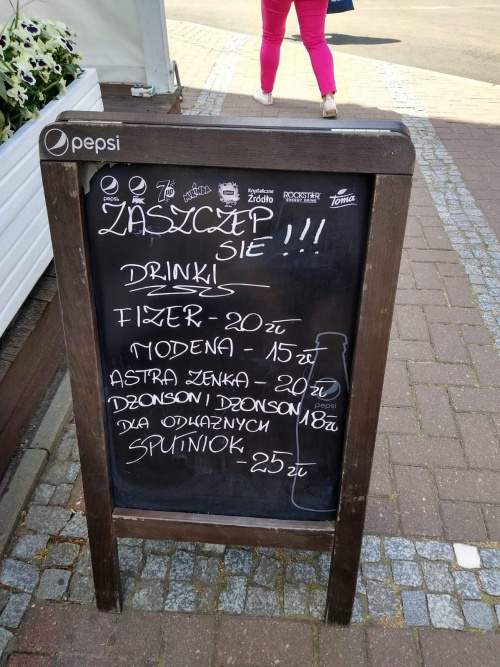 pepsi
pepsi MAX 7UP MIRINDA Krystaliczne Źródło ROCKSTAR ENERGY DRINK Toma
ZASZCZEP
SIE !!!
DRINKI
FIZER - 20 zł
MODENA - 15 zł
ASTRA ZENKA - 20 zł
DZONSON I DZONSON 18 zł
DLA ODWAŻNYCH
SPUTNIOK
- 25 zł
pepsi